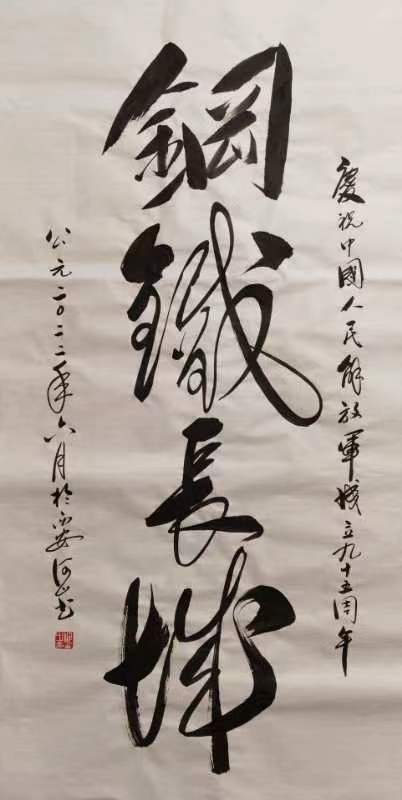 慶祝中國人民解放軍成立九十五周年
鋼鐵長城
公元二〇二二年六月於西安河山书